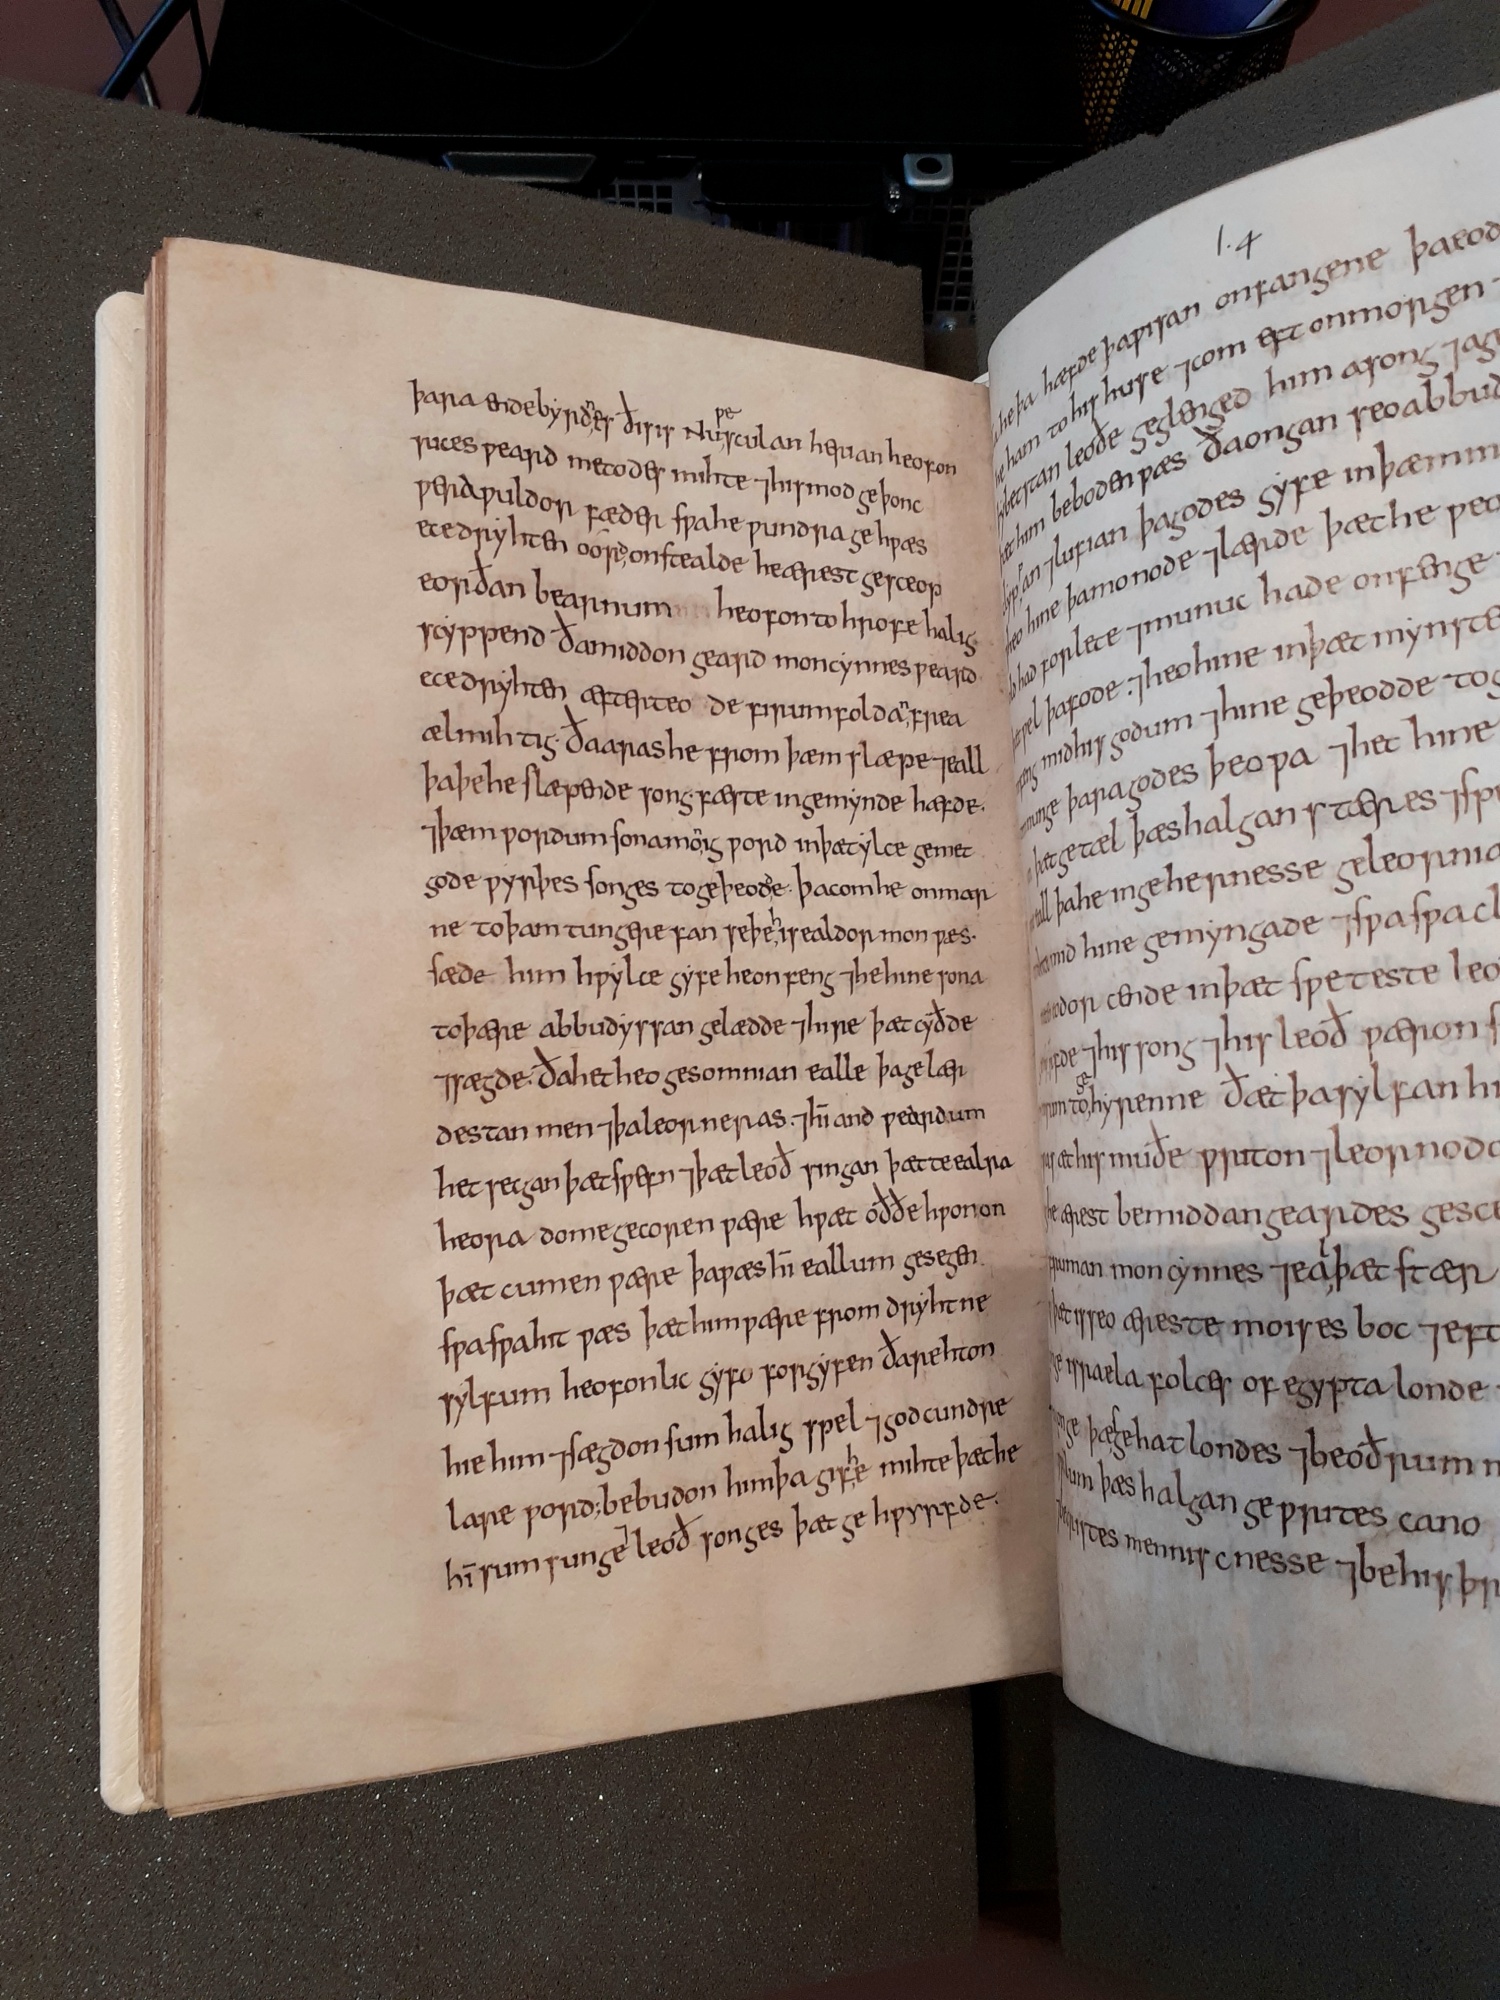 þara endebyrdnes ðis is Nu we sculan herian heofon
rices weard metodes mihte ⁊ his modgeþonc
werd wuldor fæder swa he wundra gehwæs
ece dryhten oór onstealde he ærest gesceop
eorðan bearnum heofon to hrofe halig
scyppend ða middongeard moncynnes weard
ece dryhten æfter teode firum foldan frea
ælmihtig. ða aras he from þæm slæpe ⁊ eall
þa þe he slæpende song. fæste in gemynde hæfde.
⁊ þæm wordum sona monig word in þæt ylce gemet
gode wyrþes songes to geþeodde. þa com he on mar
ne to þam tungerefan se þe his ealdormon wes.
sæde him hwylce gyfe he onfeng ⁊ he hine sona
to þære abbudyssan gelædde ⁊ hire þæt cyðde
⁊ sægde. ða het heo gesomnian ealle þa gelær
destan men ⁊ þa leorneras. ⁊ hī andweardum
het secgan þæt swefn ⁊ þæt leoð singan þætte ealra
heora dome gecoren wære hwæt oððe hwonon
þæt cumen wære þa wæs hī eallum gesegen
swa swa hit wæs þæt him wære from dryhtne
sylfum heofonlic gyfo forgyfen ða rehton
hie him ⁊ sægdon sum halig spel ⁊ godcundre
lare word; bebudon him þa gif he mihte þæt he
hī sum sunge ⁊ leoð songes þæt gehwyrfde.
1.4
he þa hæfde þa wisan onfangene þa eod
he ham to his huse ⁊ com eft on morgen
betstan leoðe geglenged him asong ⁊ ag
him beboden wæs ða ongan seo abbud
an ⁊ lufian þa godes gyfe in þæm
heo hine þa monode ⁊ lærde þæt he weo
had forlete ⁊ munuc hade onfenge
wel þafode. ⁊ heo hine in þæt mynste
feng mid his godum ⁊ hine geþeodde to g
þara godes þeowa ⁊ het hine
þæt getæl þæs halgan stæres ⁊ spe
eall þa he in gehernesse geleornia
mid hine gemyngade ⁊ swa swa cl
eodorcende in þæt sweteste leo
⁊ his song ⁊ his leoð wæron s
to gehyrenne ðæt þa sylfan hi
æt his muðe writon ⁊ leornodo
he ærest be middangeardes gesce
fruman moncynnes ⁊ eal þæt stær
þæt is seo æreste moises boc ⁊ eft
israela folces of egypta londe
þæs gehatlondes ⁊ be oðrum m
þæs halgan gewrites cano
cristes menniscnesse ⁊ be his þr